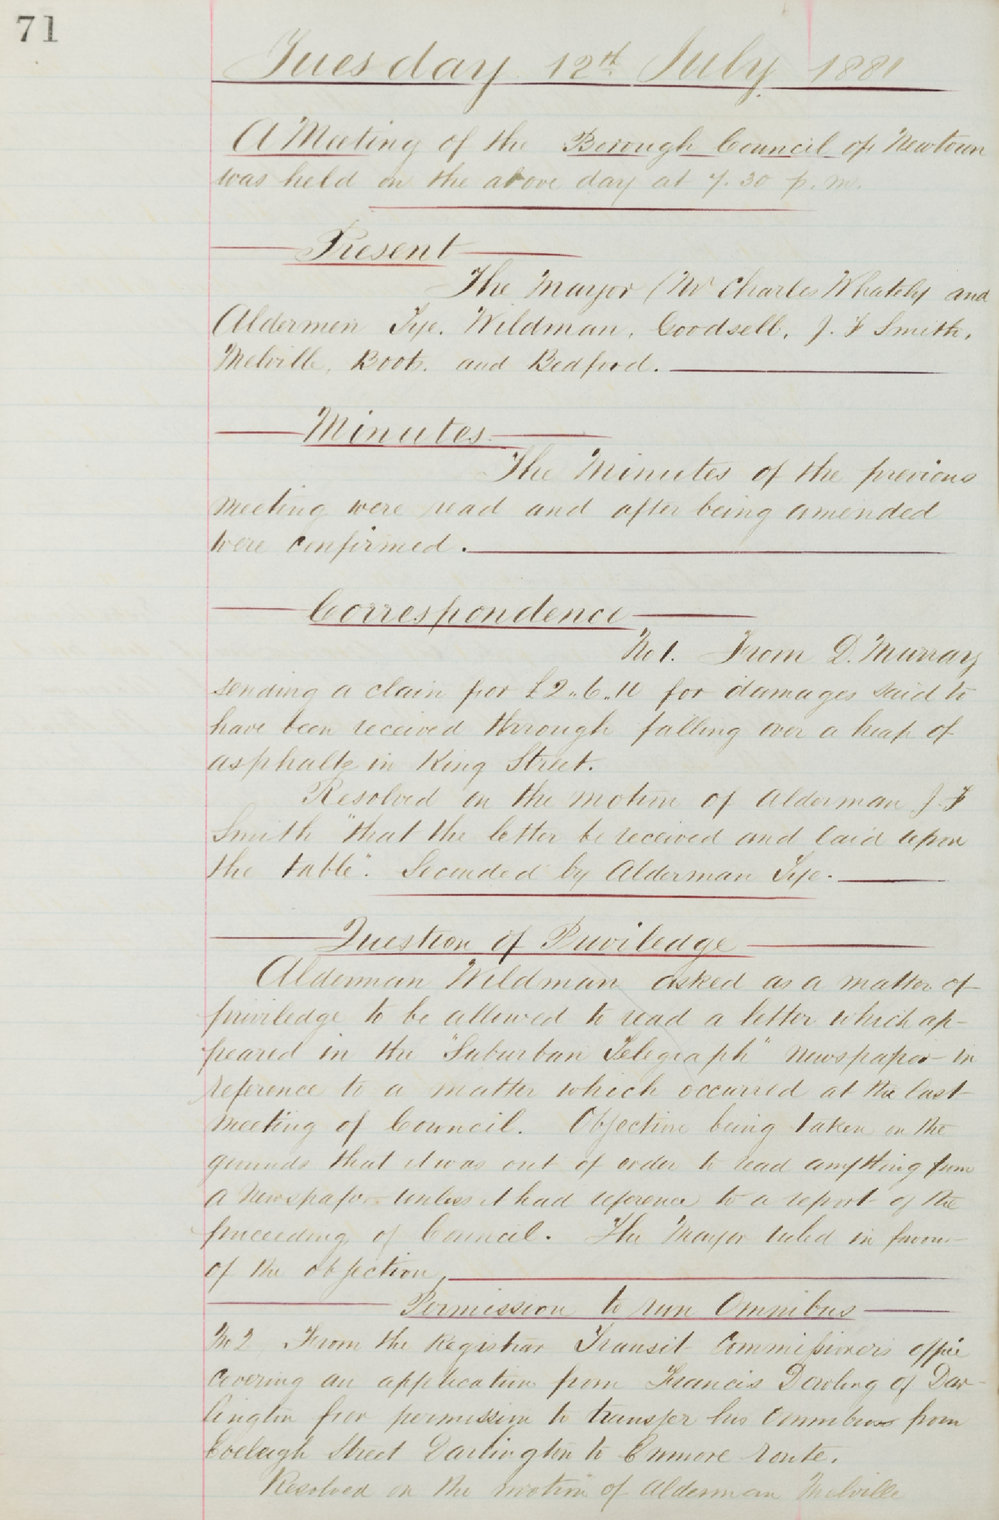 71
Tuesday 12th July 1881
A Meeting of the Borough Council of Newtown
was held on the above day at 7.30 p.m.
Present
The Mayor (Mr Charles Whately and
Aldermen Tye. Wildman, Goodsell, J. F Smith,
Melville, Boots. and Bedford.
Minutes
The Minutes of the previous
meeting were read and after being amended
were confirmed.
Correspondence
No 1. From D. Murray
sending a claim for £2..6..11 for damages said to
have been received through falling over a heap of
asphalte in King Street.
Resolved on the motion of Alderman J. F
Smith "that the letter be received and laid upon
the table". Seconded by Alderman Tye.
Question of Priviledge
Alderman Wildman asked as a matter of
priviledge to be allowed to read a letter which ap-
peared in the "Suburban Telegraph" newspaper in
reference to a matter which occurred at the last
meeting of Council. Objection being taken on the
grounds that it was out of order to read anything from
a Newspaper unless it had reference to a report of the
proceeding of Council. The Mayor ruled in favour
of the objection,
Permission to run Omnibus
No 2 From the Registrar Transit Commissioners office
covering an application from Francis Dowling of Dar-
lington for permission to transfer his Omnibus from
Street Darlington to Enmore route.
Resolved on the motion of Alderman Melville